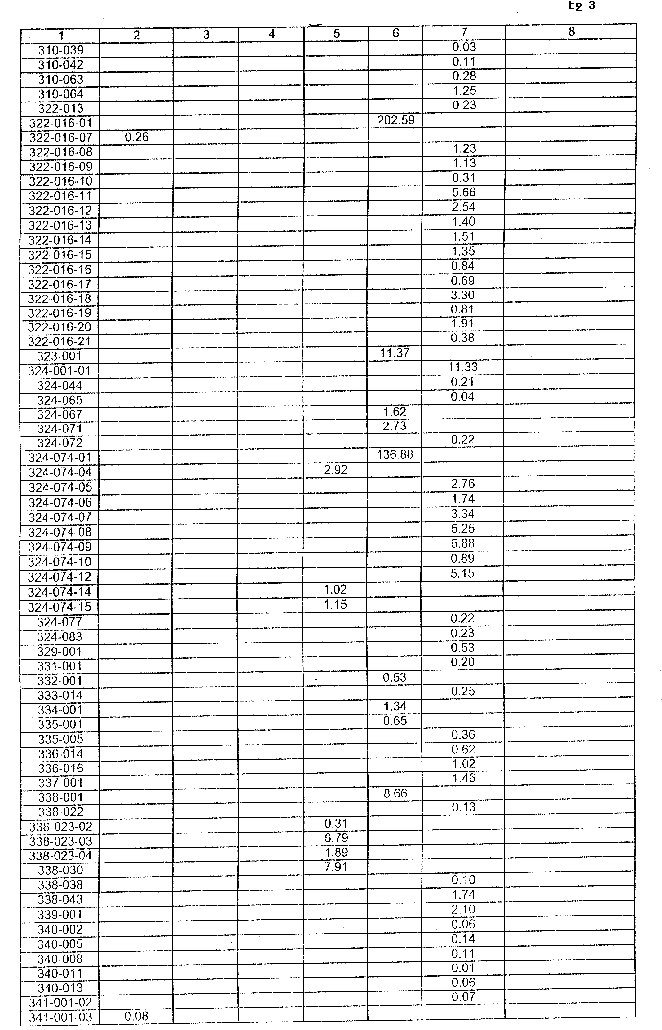 Eg 3
1 2 3 4 5 6 7 8
310-039 0.03
310-042 0.11
310-063 0.28
310-064 1.25
322-013 0.23
322-016-01 202.59
322-016-07 0.26
322-016-08 1.23
322-016-09 1.13
322-016-10 0.31
322-016-11 5.66
322-016-12 2.54
322-016-13 1.40
322-016-14 1.51
322-016-15 1.35
322-016-16 0.84
322-016-17 0.69
322-016-18 3.30
322-016-19 0.81
322-016-20 1.91
322-016-21 0.38
323-001 11.37
324-001-01 11.33
324-044 0.21
324-065 0.04
324-067 1.62
324-071 2.73
324-072 0.22
324-074-01 136.88
324-074-04 2.92
324-074-05 2.76
324-074-06 1.74
324-074-07 3.34
324-074-08 5.25
324-074-09 5.88
324-074-10 0.89
324-074-12 5.15
324-074-14 1.02
324-074-15 1.15
324-077 0.22
324-083 0.23
329-001 0.53
331-001 0.20
332-001 0.53
333-014 0.25
334-001 1.34
335-001 0.65
335-005 0.36
336-014 0.62
336-016 1.02
337-001 1.46
338-001 8.66
338-022 0.13
338-023-02 0.31
338-023-03 6.79
338-023-04 1.89
338-030 7.91
338-038 0.10
338-043 1.74
339-001 2.10
340-002 0.06
340-005 0.14
340-008 0.11
340-011 0.01
340-013 0.06
341-001-02 0.07
341-001-03 0.08